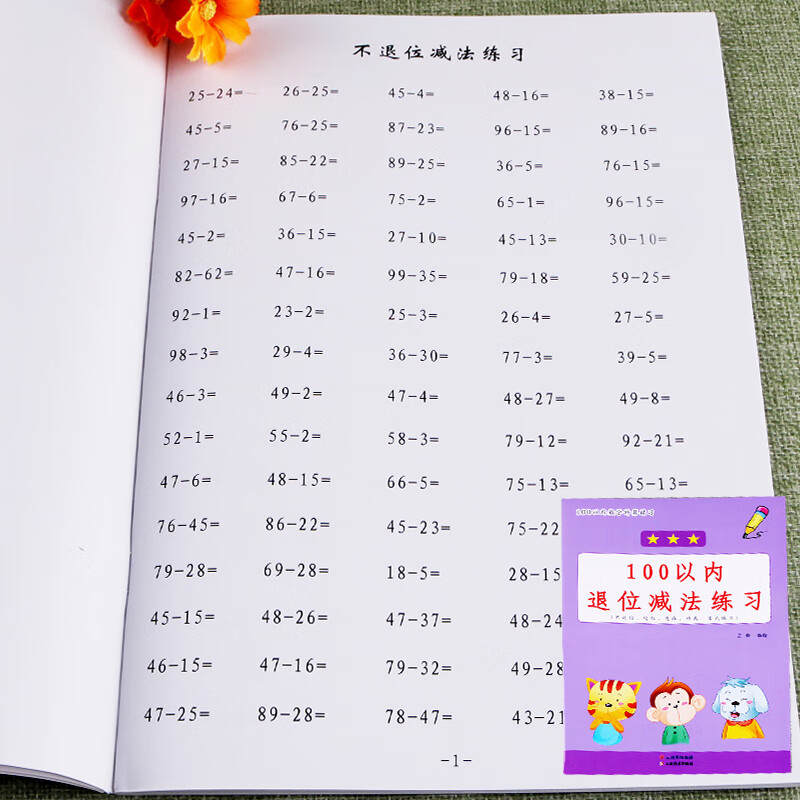 不退位减法练习
25-24= 26-25= 45-4= 48-16= 38-15=
45-5= 76-25= 87-23= 96-15= 89-16=
27-15= 85-22= 89-25= 36-5= 76-15=
97-16= 67-6= 75-2= 65-1= 96-15=
45-2= 36-15= 27-10= 45-13= 30-10=
82-62= 47-16= 99-35= 79-18= 59-25=
92-1= 23-2= 25-3= 26-4= 27-5=
98-3= 29-4= 36-30= 77-3= 39-5=
46-3= 49-2= 47-4= 48-27= 49-8=
52-1= 55-2= 58-3= 79-12= 92-21=
47-6= 48-15= 66-5= 75-13= 65-13=
76-45= 86-22= 45-23= 75-22
79-28= 69-28= 18-5= 28-15
45-15= 48-26= 47-37= 48-24
46-15= 47-16= 79-32= 49-28
47-25= 89-28= 78-47= 43-21
-1-
100以内
退位减法练习